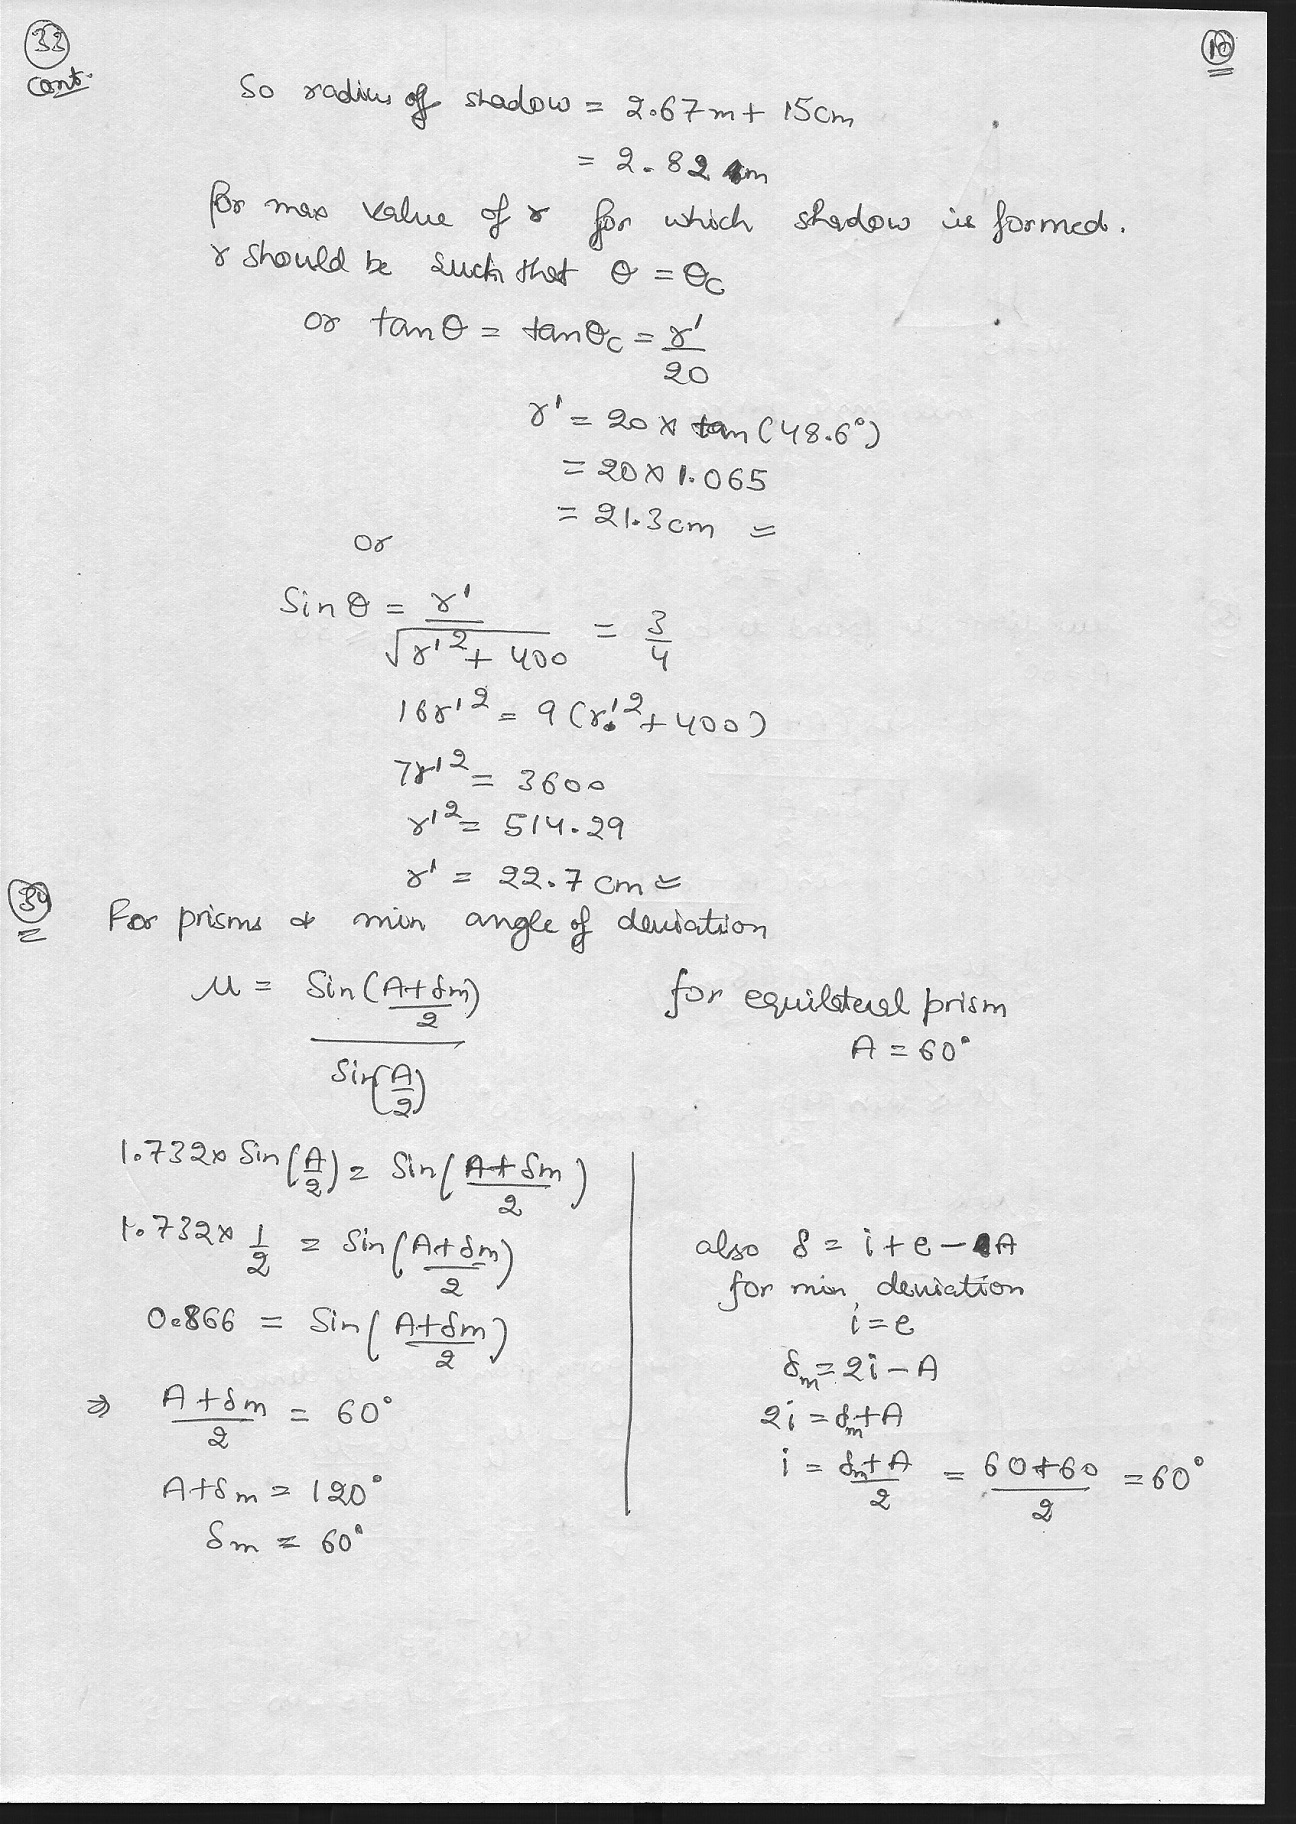 33 cont.
10
So radius of shadow = 2.67m + 15cm
= 2.82 m
for max value of r for which shadow is formed.
r should be such that θ = θc
or tanθ = tanθc = r'/20
r' = 20 × tan(48.6°)
= 20×1.065
= 21.3cm =
or
Sinθ = r'/√(r'² + 400) = 3/4
16r'² = 9(r'² + 400)
7r'² = 3600
r'² = 514.29
r' = 22.7 cm =
34
For prisms & min angle of deviation
μ = Sin((A+δm)/2) / Sin(A/2)
for equilateral prism
A = 60°
1.732× Sin(A/2) = Sin((A+δm)/2)
1.732× 1/2 = Sin((A+δm)/2)
0.866 = Sin((A+δm)/2)
⇒ (A+δm)/2 = 60°
A+δm = 120°
δm = 60°
also δ = i+e-A
for min deviation
i = e
δm = 2i - A
2i = δm+A
i = (δm+A)/2 = (60+60)/2 = 60°